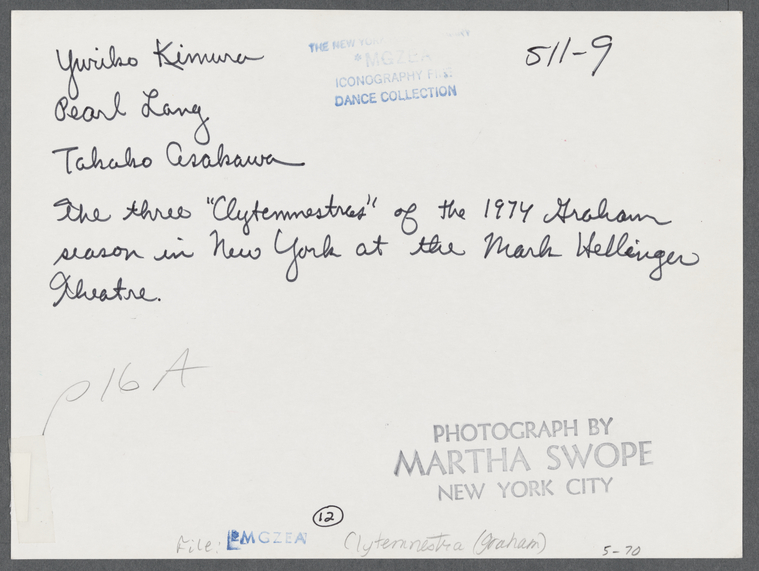 Yuriko Kimura
Pearl Lang
Takako Asakawa
The three "Clytemnestras" of the 1974 Graham
season in New York at the Mark Hellinger
Theatre.
511-9
THE NEW
*MGZEA
ICONOGRAPHY FILE
DANCE COLLECTION
p16A
PHOTOGRAPH BY
MARTHA SWOPE
NEW YORK CITY
12
File: *MGZEA Clytemnestra (Graham) 5-70